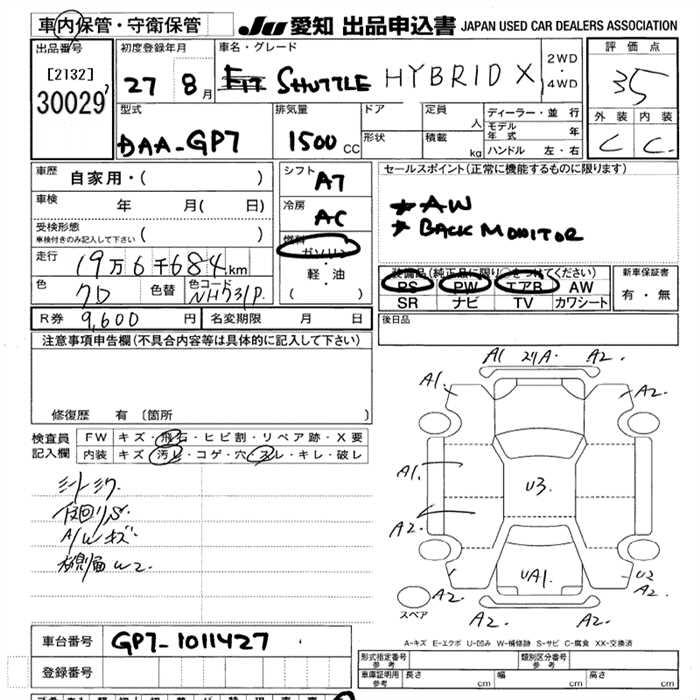 車内保管・守衛保管 JU 愛知 出品申込書 JAPAN USED CAR DEALERS ASSOCIATION
出品番号 初度登録年月 車名・グレード 2WD ・ 4WD 評価点
[2132] 30029 27 8月 Fit SHUTTLE HYBRID X 35
型式 排気量 ドア 定員 人 ディーラー・並行 外装 内装
DAA-GP7 1500 CC 形状 積載 kg モデル年式 年 C C
ハンドル 左・右
車歴 自家用・( ) シフト AT セールスポイント(正常に機能するものに限ります)
車検 年 月( 日) 冷房 AC ★ AW
受検形態 車検付きのみ記入して下さい ( ) ★ BACK MONITOR
走行 19万6千684km 燃料 ガソリン・軽・油 ( )
装備品(純正品に限り○をつけてください) 新車保証書
色 色替 色コード NH731P PS PW エアB AW 有・無
SR ナビ TV カワシート
R券 9,600 円 名変期限 月 日 後日品
注意事項申告欄(不具合内容等は具体的に記入して下さい)
修復歴 有 〔箇所 〕
検査員記入欄 FW キズ・飛石・ヒビ割・リペア跡・X要
内装 キズ・汚レ・コゲ・穴・スレ・キレ・破レ
A/Wキズ
A1 A2.
A1. A2.
A1. U3
A2.
UA1. U2 A2.
A2. A2.
スペア
A-キズ E-エクボ U-凹み W-補修跡 S-サビ C-腐食 XX-交換済
車台番号 GP7-1011427
登録番号
形式指定番号 参考 類別区分番号 参考
車庫証明用 参考 長さ cm 幅 cm 高さ cm